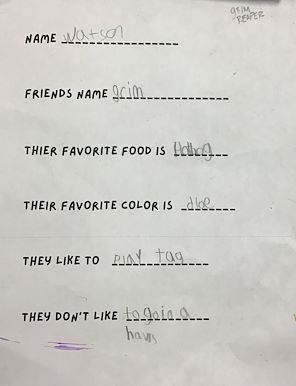 GRIM
REAPER
NAME Watson
FRIENDS NAME Grim
THIER FAVORITE FOOD IS
THEIR FAVORITE COLOR IS
THEY LIKE TO play tag
THEY DON'T LIKE to go in a